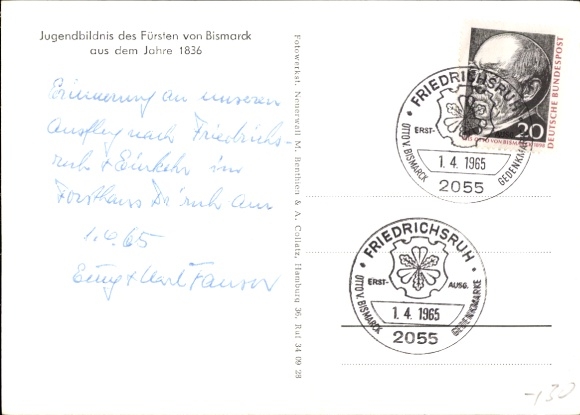 Jugendbildnis des Fürsten von Bismarck
aus dem Jahre 1836
Erinnerung an unseren
Ausflug nach Friedrichs-
ruh + Einkehr im
Forsthaus Fr'ruh am
1.4.65
+ Karl
Fotowerkst. Neuerwall M. Benthien & A. Collatz, Hamburg 36, Ruf 34 09 28
DEUTSCHE BUNDESPOST
20
OTTO VON BISMARCK 1898
FRIEDRICHSRUH
ERST- AUSG.
OTTO V. BISMARCK
GEDENKMARKE
1. 4. 1965
2055
FRIEDRICHSRUH
ERST- AUSG.
OTTO V. BISMARCK
GEDENKMARKE
1. 4. 1965
2055
-130